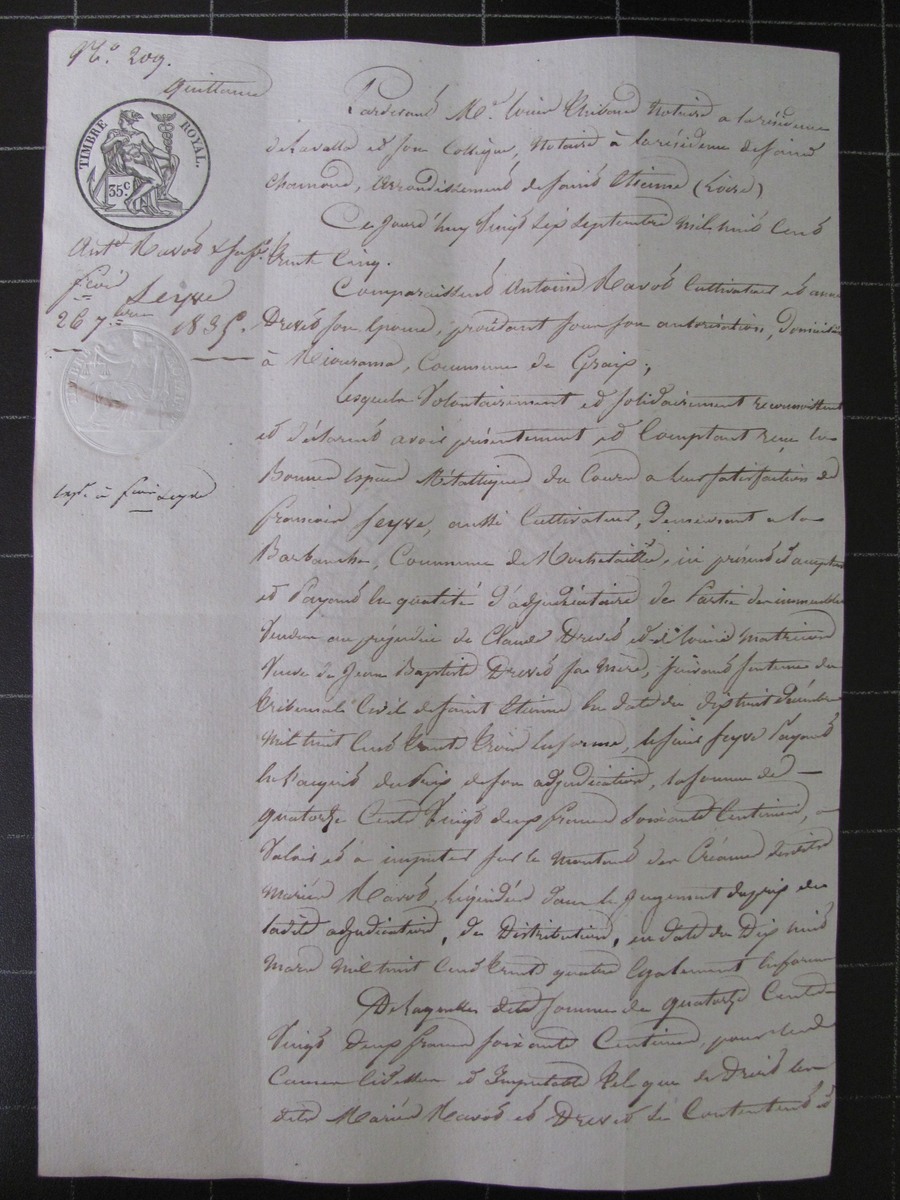 N.º 209.
quittance
TIMBRE ROYAL.
35.c
Ant.e Ravot & sa f.e
frçois Seyve
26 7.bre 1835.
exp.on à fçois Seyve
Pardevant M.e Louis Thibaud Notaire a la résidence
de Lavalla et son Collègue, Notaire à la résidence de Saint
Chamond, arrondissement de Saint Etienne (Loire)
Ce jourd'huy Vingt Six Septembre Mil huit Cent
trente Cinq.
Comparaissent Antoine Ravot Cultivateur et anne
Drevet son Epouse, procédant sous son autorisation, Domiciliés
à, Commune de Graix,
Lesquels Volontairement et solidairement reconnaissent
et déclarent avoir présentement et Comptant reçu en
Bonnes Espèces Métalliques du Cours a leur satisfaction de
françois Seyve, aussi Cultivateur, Demeurant a la
Barbanche, Commune de Rochetaillée, ici présent et acceptant
et Payant en qualité d'adjudicataire de Partie des immeubles
Vendus au préjudice de Claude Drevet et de Louise
Veuve de Jean Baptiste Drevet sa Mère, suivant sentence du
tribunal Civil de Saint Etienne en date du dix huit Décembre
Mil huit Cent trente trois en forme, le sieur Seyve Payant
en l'acquit du Prix de son adjudication, la somme de —
quatorze Cents Vingt deux francs Soixante Centimes, a
Valoir et a imputer sur le montant des Créances desdits
Mariés Ravot, liquidées dans le Jugement du prix de
ladite adjudication, de Distribution, en date du Dix huit
Mars Mil huit Cent trente quatre Egalement en forme
De laquelle dite somme de quatorze Cents
Vingt deux francs soixante Centimes, pour les
Causes Cidessus et Imputable tel que de Droit les
dits Mariés Ravot et Drevet se Contentent et